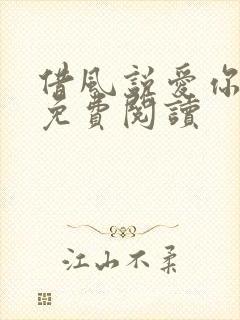 借風說愛你
免費閱讀
江山不柔